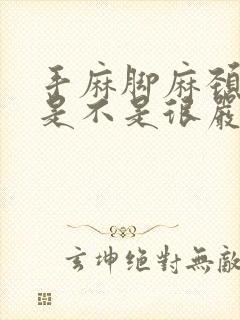 手麻脚麻颈
是不是很嚴
玄坤絕對無敵